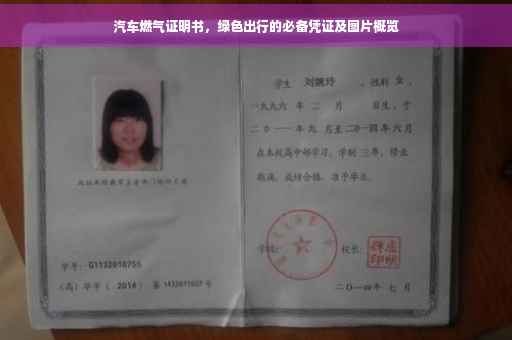 汽车燃气证明书，绿色出行的必备凭证及图片概览
学生 刘婉玲 ，性别 女 ，
一九九六 年 二 月 日生，于
二〇一一 年 九 月至 二〇一四 年 六 月
在本校高中部学习，学制 三 年，修业
期满，成绩合格，准予毕业。
学校：
校长：
学号：G1132010755
（高）毕字（ 2014 ）第 1432011037 号
二〇一四年 七 月